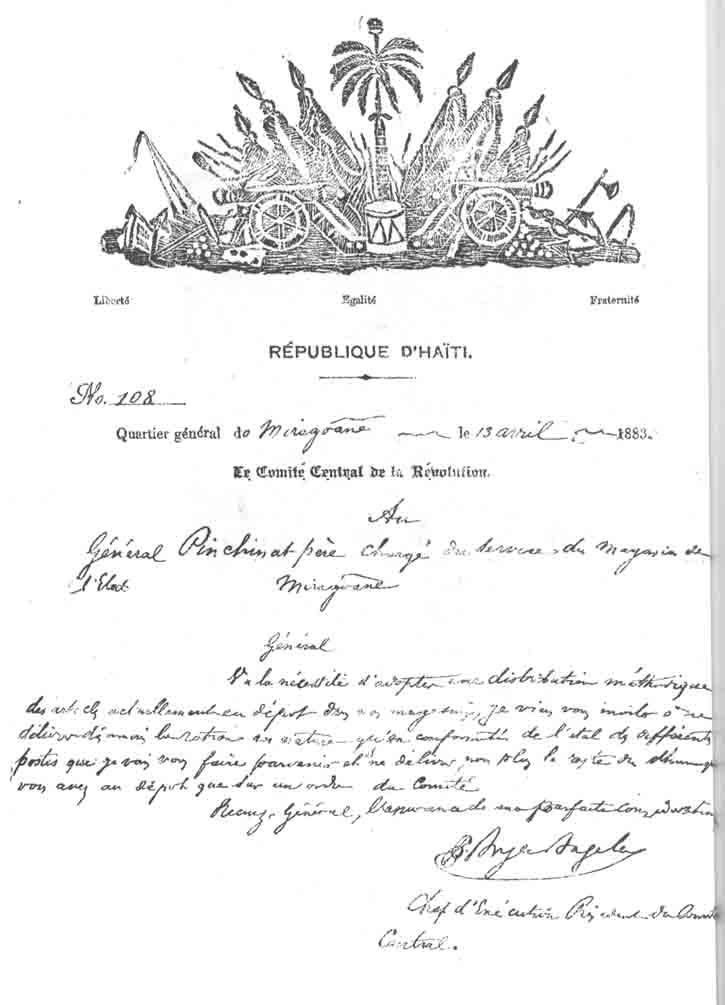 Liberté Egalité Fraternité
RÉPUBLIQUE D'HAÏTI.
No. 108
Quartier général de Miragoâne le 13 avril 1883.
Le Comité Central de la Révolution.
Au
Général Pinchinat père chargé du service du Magasin de
l'Etat Miragoâne
Général
Vu la nécessité d'adopter une distribution méthodique
des articles actuellement en dépôt dans nos magasins, je viens vous inviter à ne
délivrer désormais la ration en nature qu'en conformité de l'état des différents
postes que je vais vous faire parvenir et ne délivrer non plus le reste du
vous avez au dépôt que sur un ordre du Comité
Recevez, Général, l'assurance de ma parfaite considération
Chef d'Exécution Président du Comité
Central.